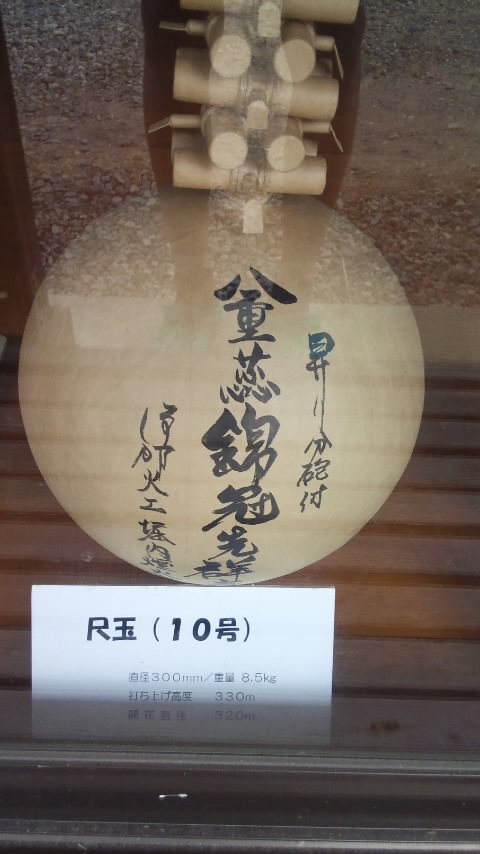 昇り分砲付
八重蕊錦冠先
火工
尺玉（１０号）
直径３００mm／重量 8.5kg
打ち上げ高度　３３０m
開花直径　３２０m